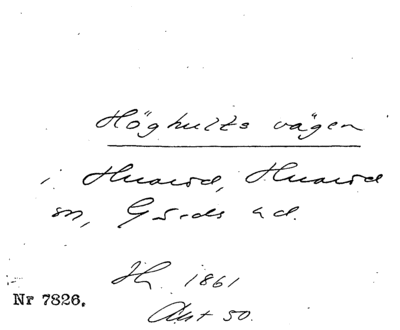 Höghults vägen
i Huaröd, Huaröd
sn, Gärds hd.
Hr. 1861
Nr 7826.
Akt 50.